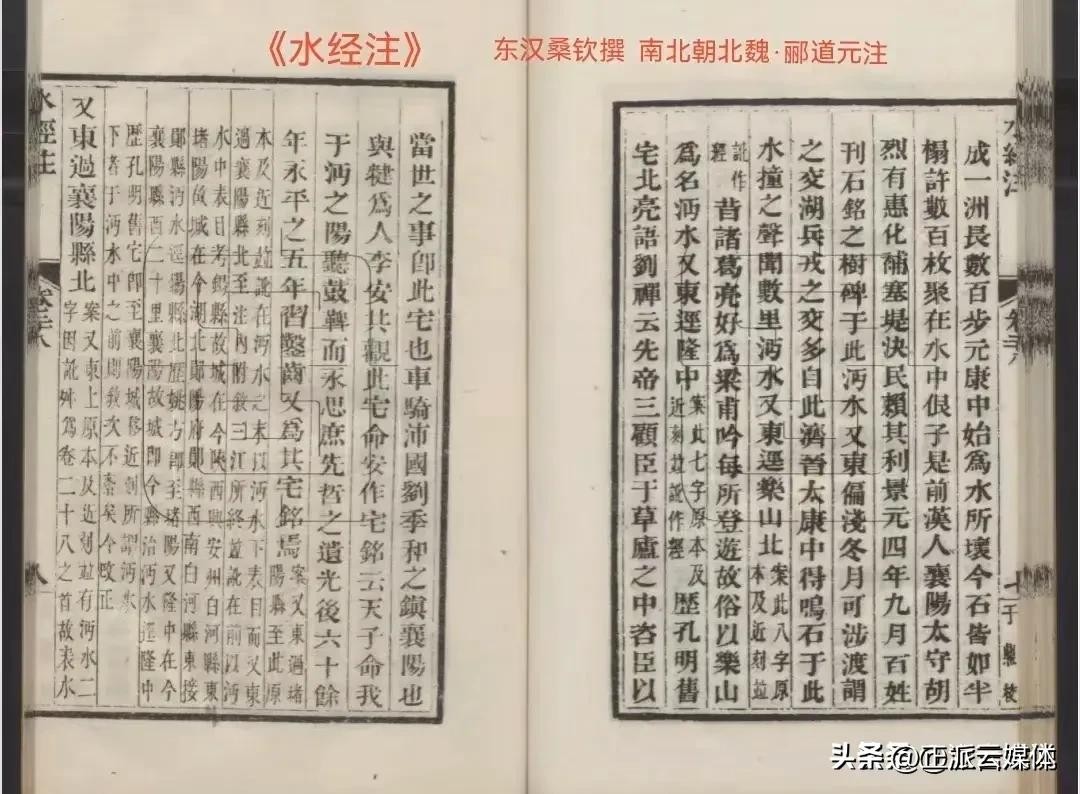 《水经注》
东汉桑钦撰 南北朝北魏·郦道元注
水經注
成一洲長數百步元康中始爲水所壞今石皆如半
榻許數百枚聚在水中佷子是前漢人襄陽太守胡
烈有惠化補塞堤決民賴其利景元四年九月百姓
刊石銘之樹碑于此沔水又東偏淺冬月可涉渡謂
之交湖兵戎之交多自此濟晉太康中得鳴石于此
水撞之聲聞數里沔水又東逕樂山北案此八字原本及近刻竝
訛作經昔諸葛亮好爲梁甫吟每所登遊故俗以樂山
爲名沔水又東逕隆中案此七字原本及近刻竝訛作經歷孔明舊
宅北亮語劉禪云先帝三顧臣于草廬之中咨臣以
當世之事卽此宅也車騎沛國劉季和之鎮襄陽也
與犍爲人李安共觀此宅命安作宅銘云天子命我
于沔之陽聽鼓鞞而永思庶先哲之遺光後六十餘
年永平之五年習鑿齒又爲其宅銘焉案又東過堵陽縣至此原
本及近刻竝訛在沔水之本以沔水下表目而又東
過襄陽縣北至注內附敘三江所終竝訛在前以沔
水中表目考錫縣故城在今陝西興安州白河縣東
堵陽故城在今湖北鄖陽府鄖縣西南白河縣東接
鄖縣沔水逕錫縣北歷姚方卽至堵陽又隆中在今
襄陽縣西二十里襄陽故城卽今縣治沔水逕隆中
歷孔明舊宅卽至襄陽城移近刻所謂沔水
下者于沔水中之前則敘次不紊矣今改正
又東過襄陽縣北案又東上原本及近刻竝有沔水二字因訛舛爲卷二十八之首故表水
水經注
卷二十八
头条号@正派云媒体